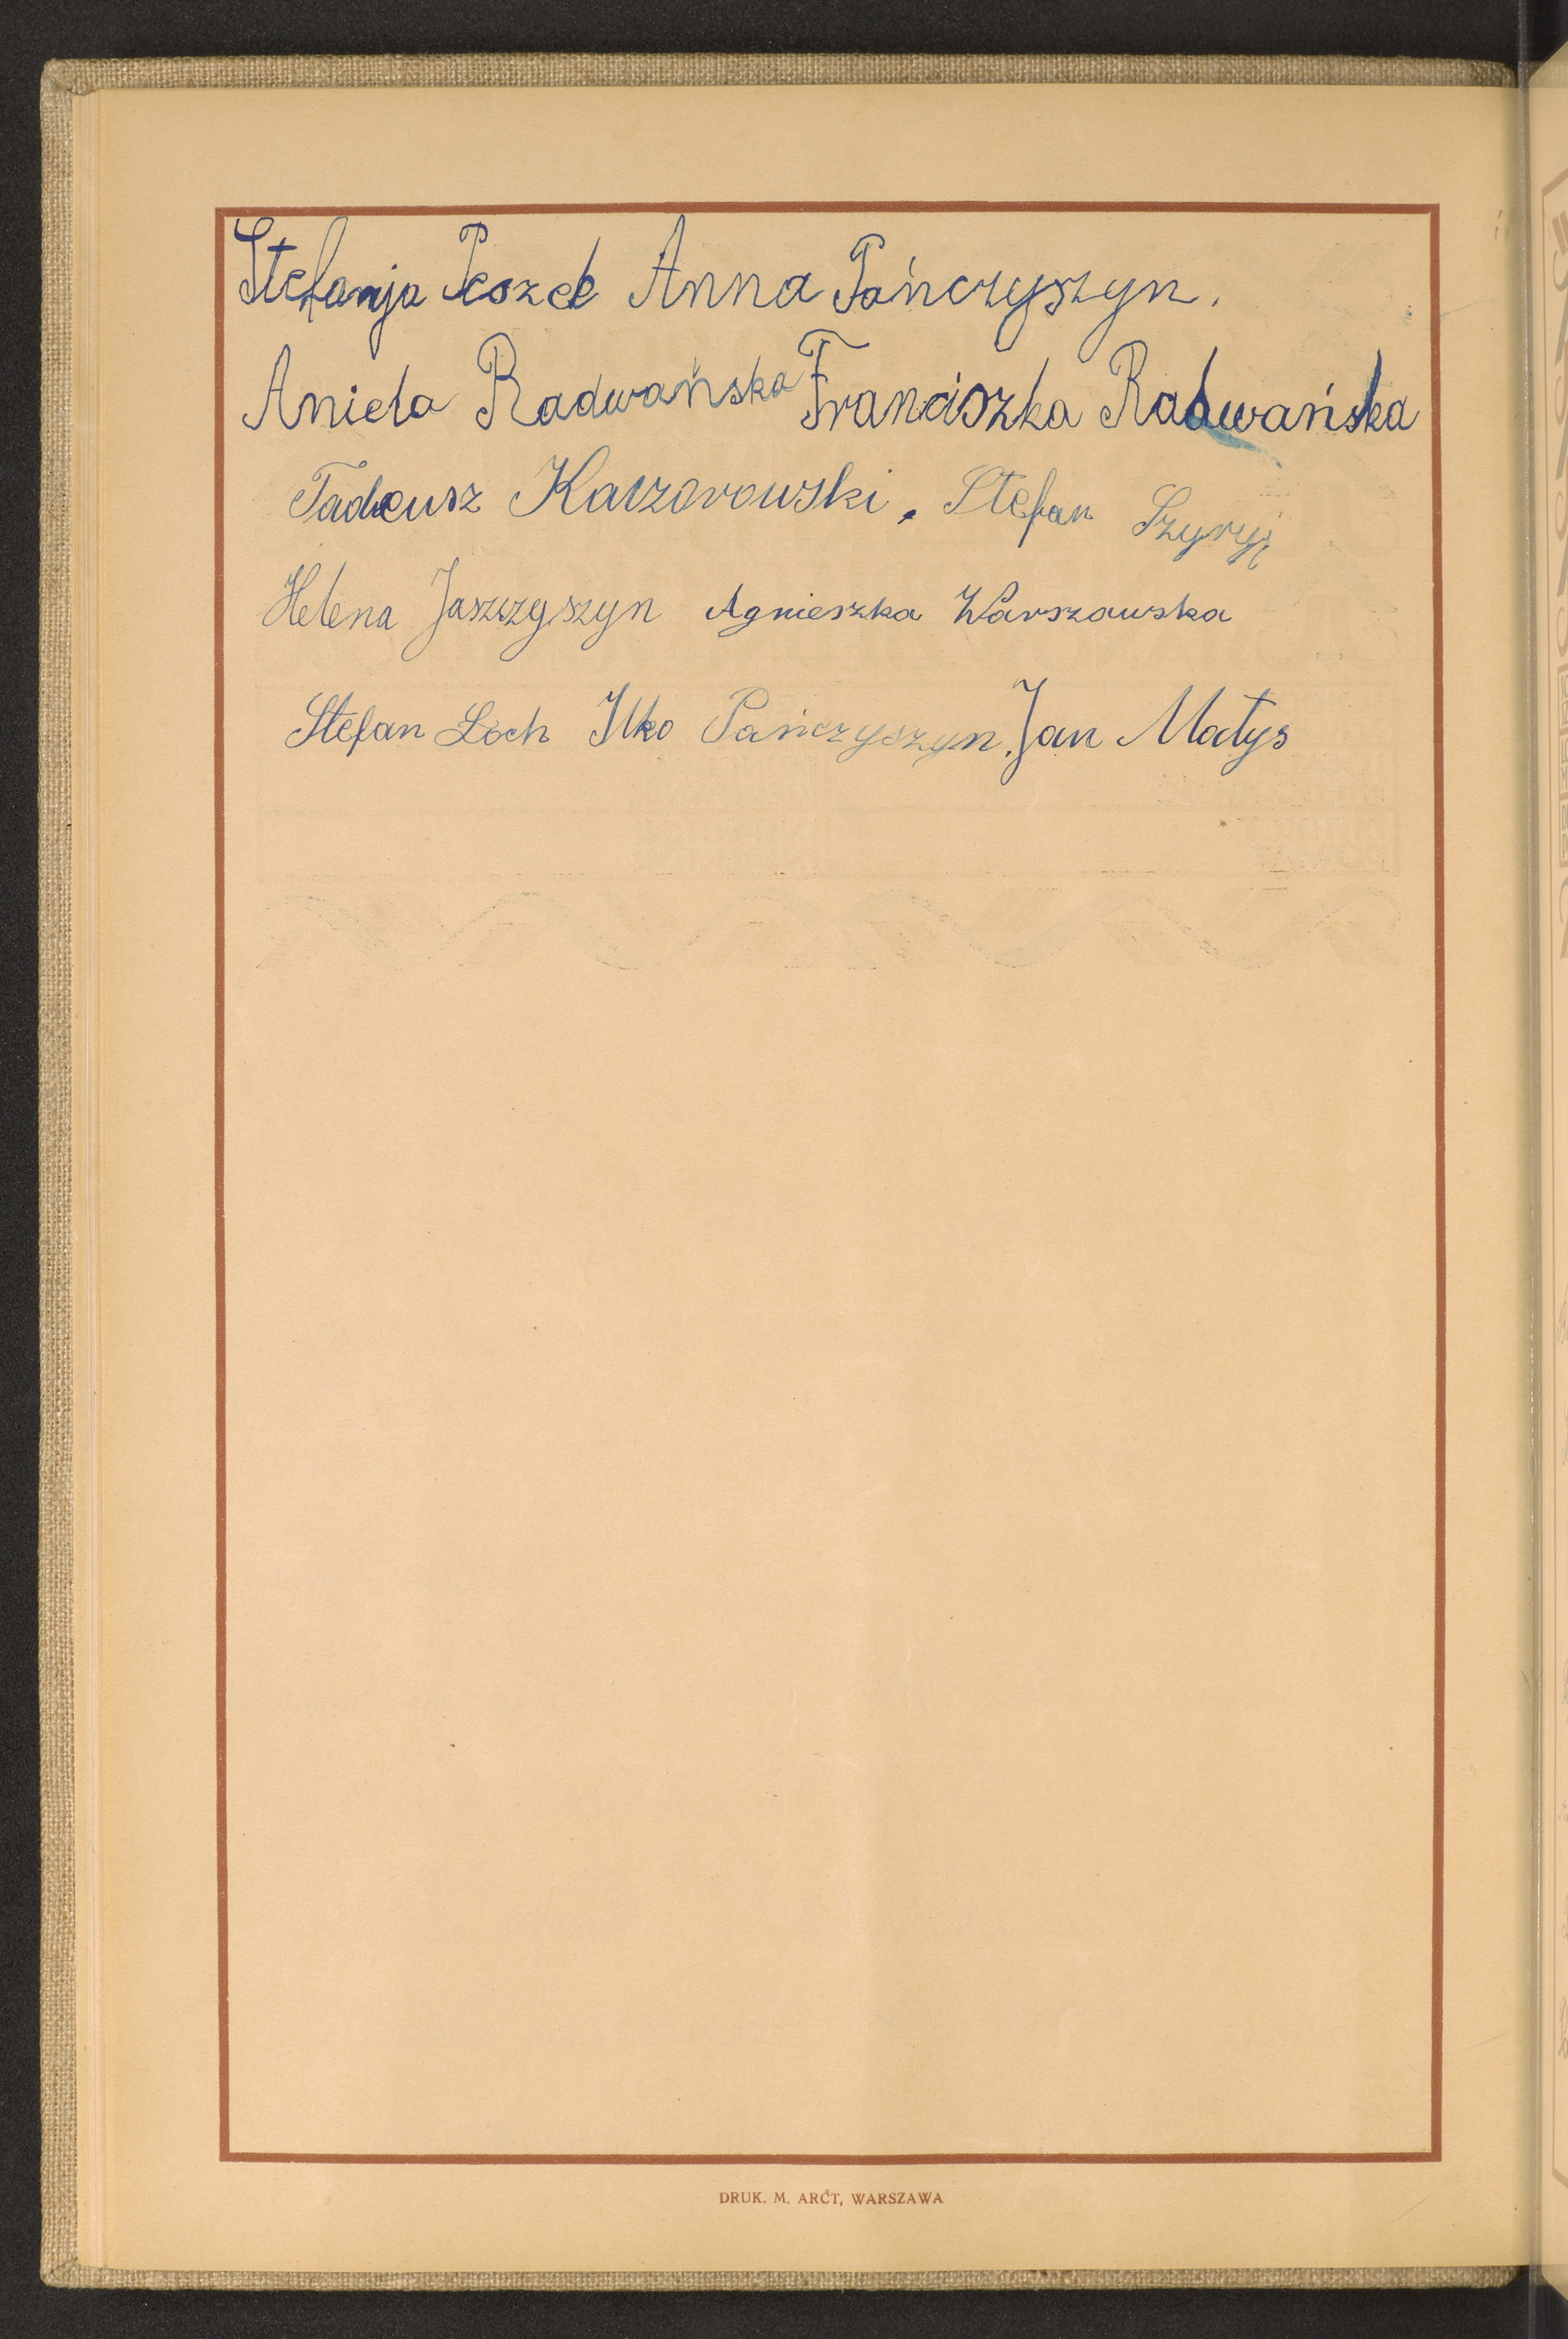 Stefanja Peszek Anna Pańczyszyn.
Aniela Radwańska Franciszka Radwańska
Tadeusz Kaczorowski. Stefan Szyryj
Helena Jaszczyszyn Agnieszka Warszawska
Stefan Loch Ilko Pańczyszyn. Jan Matys
DRUK. M. ARCT, WARSZAWA